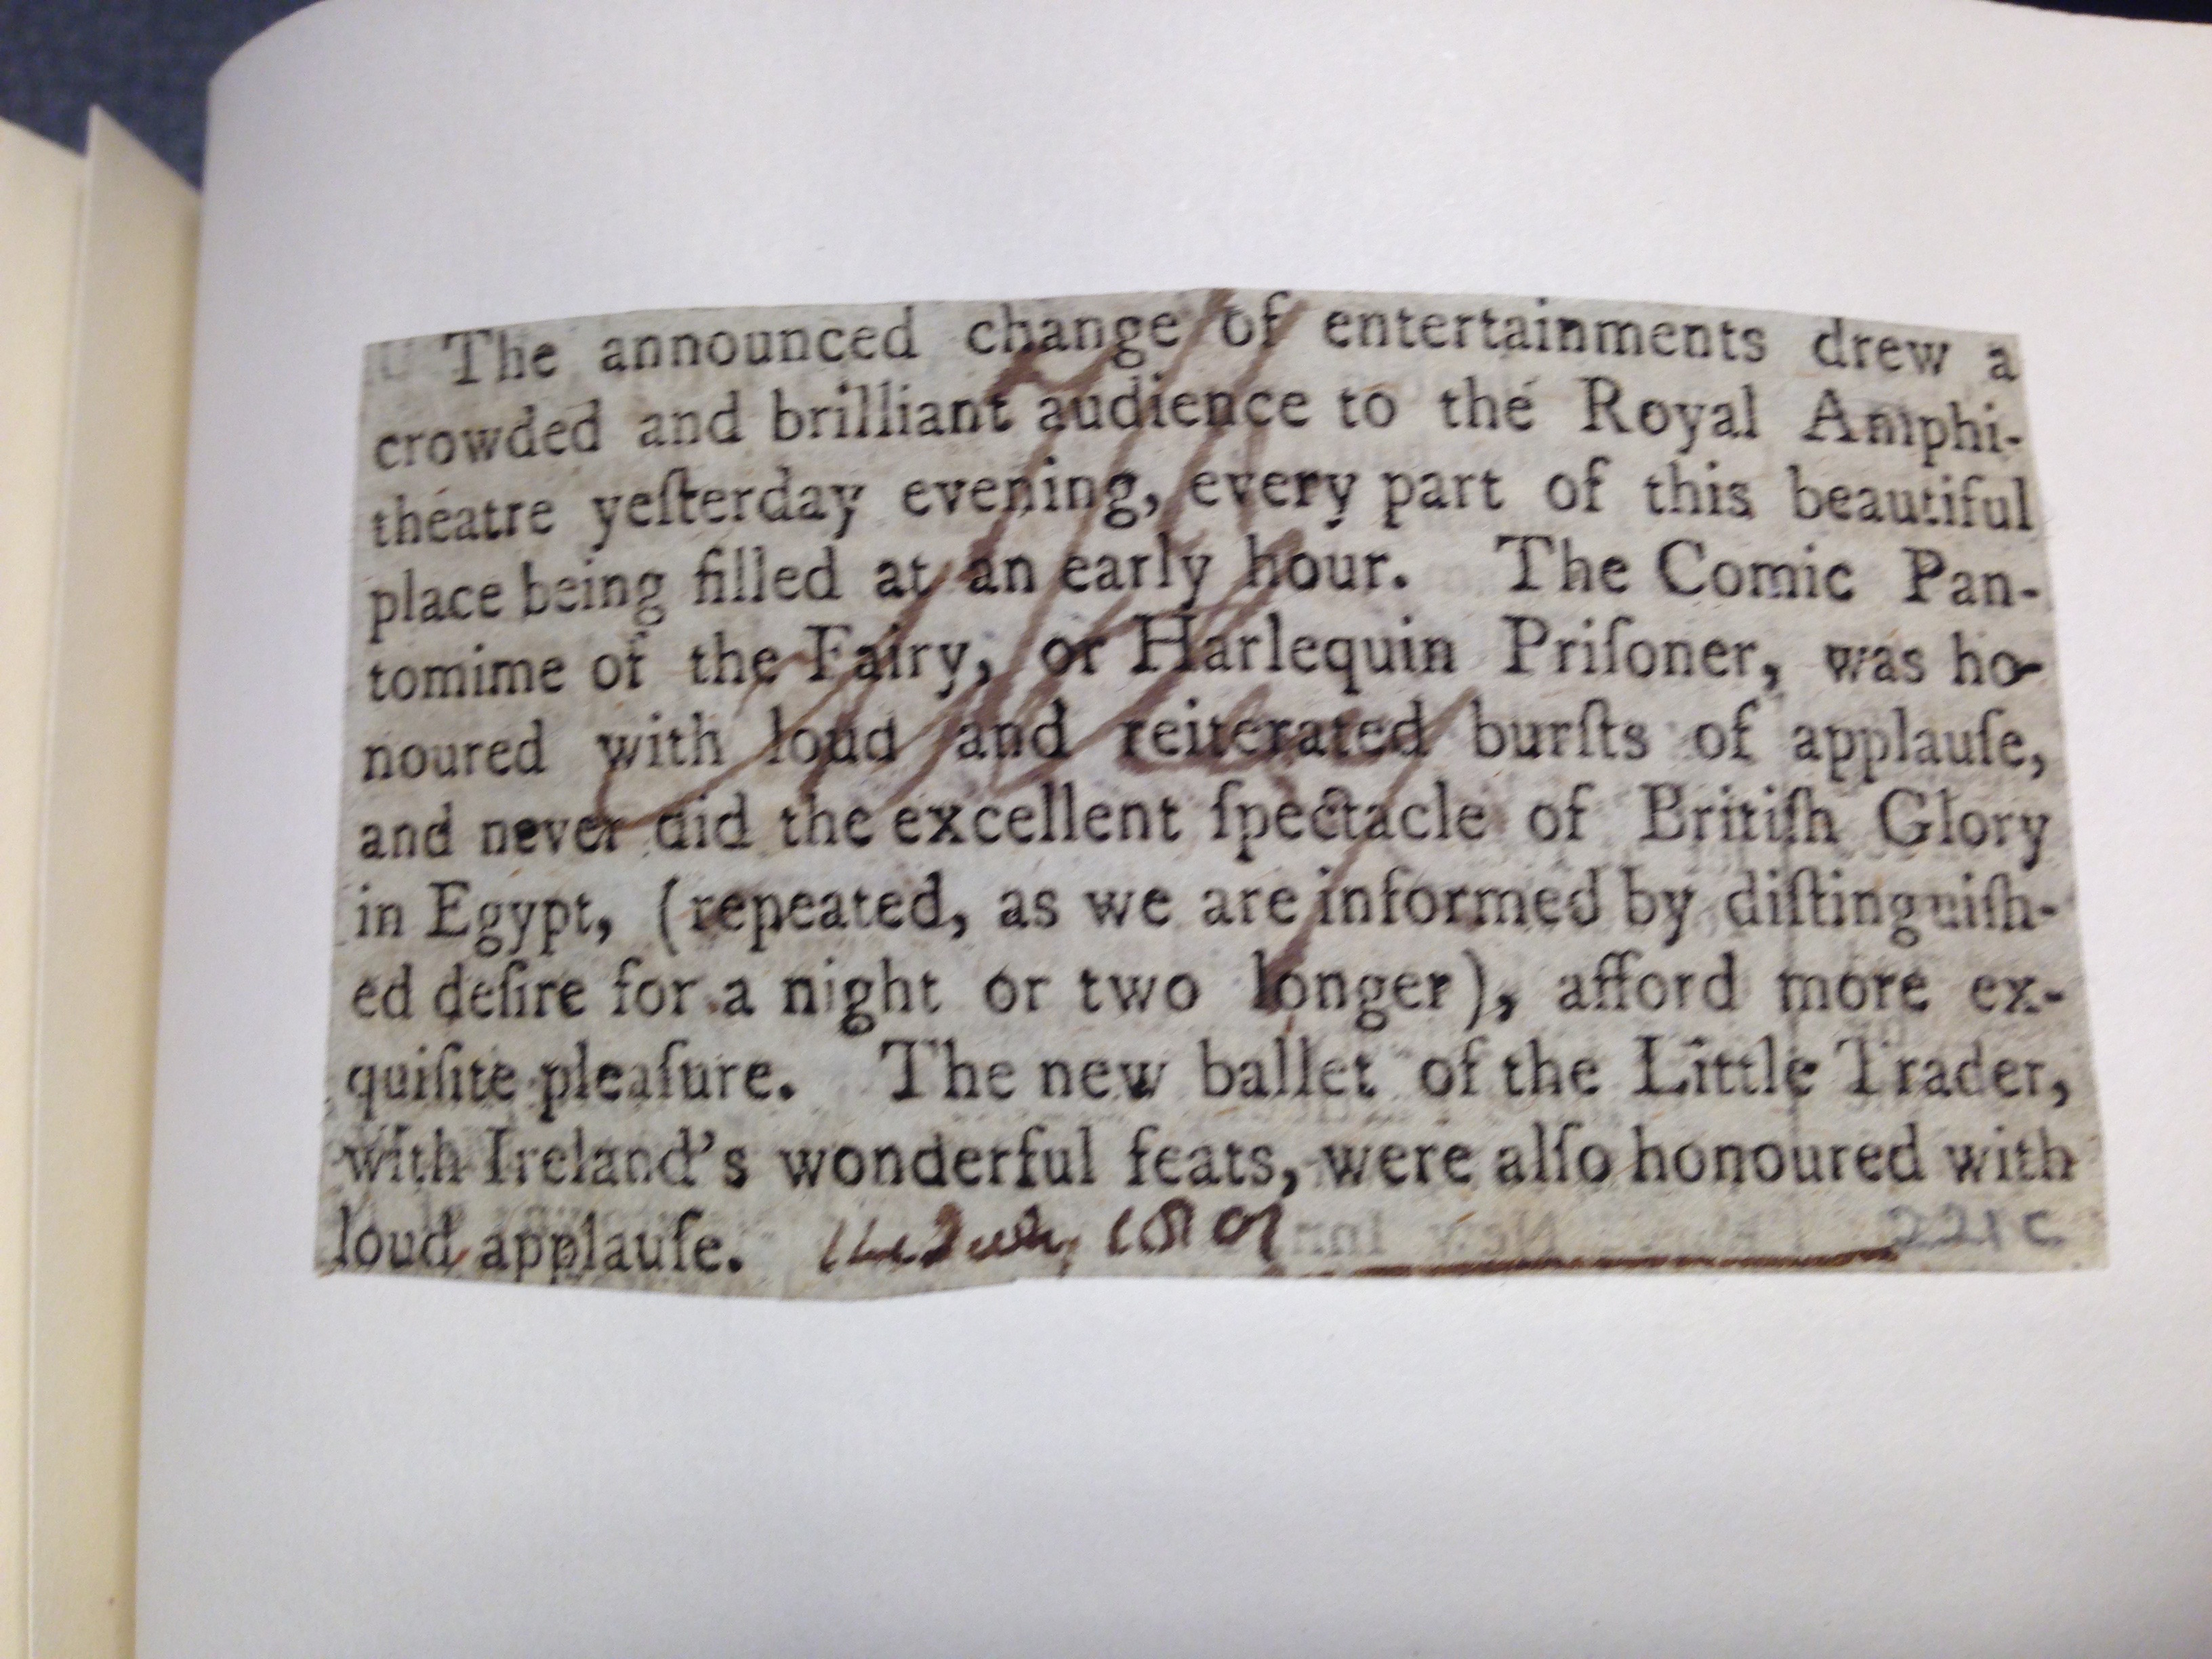 The announced change of entertainments drew a
crowded and brilliant audience to the Royal Amphi-
theatre yeſterday evening, every part of this beautiful
place being filled at an early hour. The Comic Pan-
tomime of the Fairy, or Harlequin Priſoner, was ho-
noured with loud and reiterated burſts of applauſe,
and never did the excellent ſpectacle of Britiſh Glory
in Egypt, (repeated, as we are informed by diſtinguiſh-
ed deſire for a night or two longer), afford more ex-
quiſite pleaſure. The new ballet of the Little Trader,
with Ireland's wonderful feats, were alſo honoured with
loud applauſe. July 1801
221c